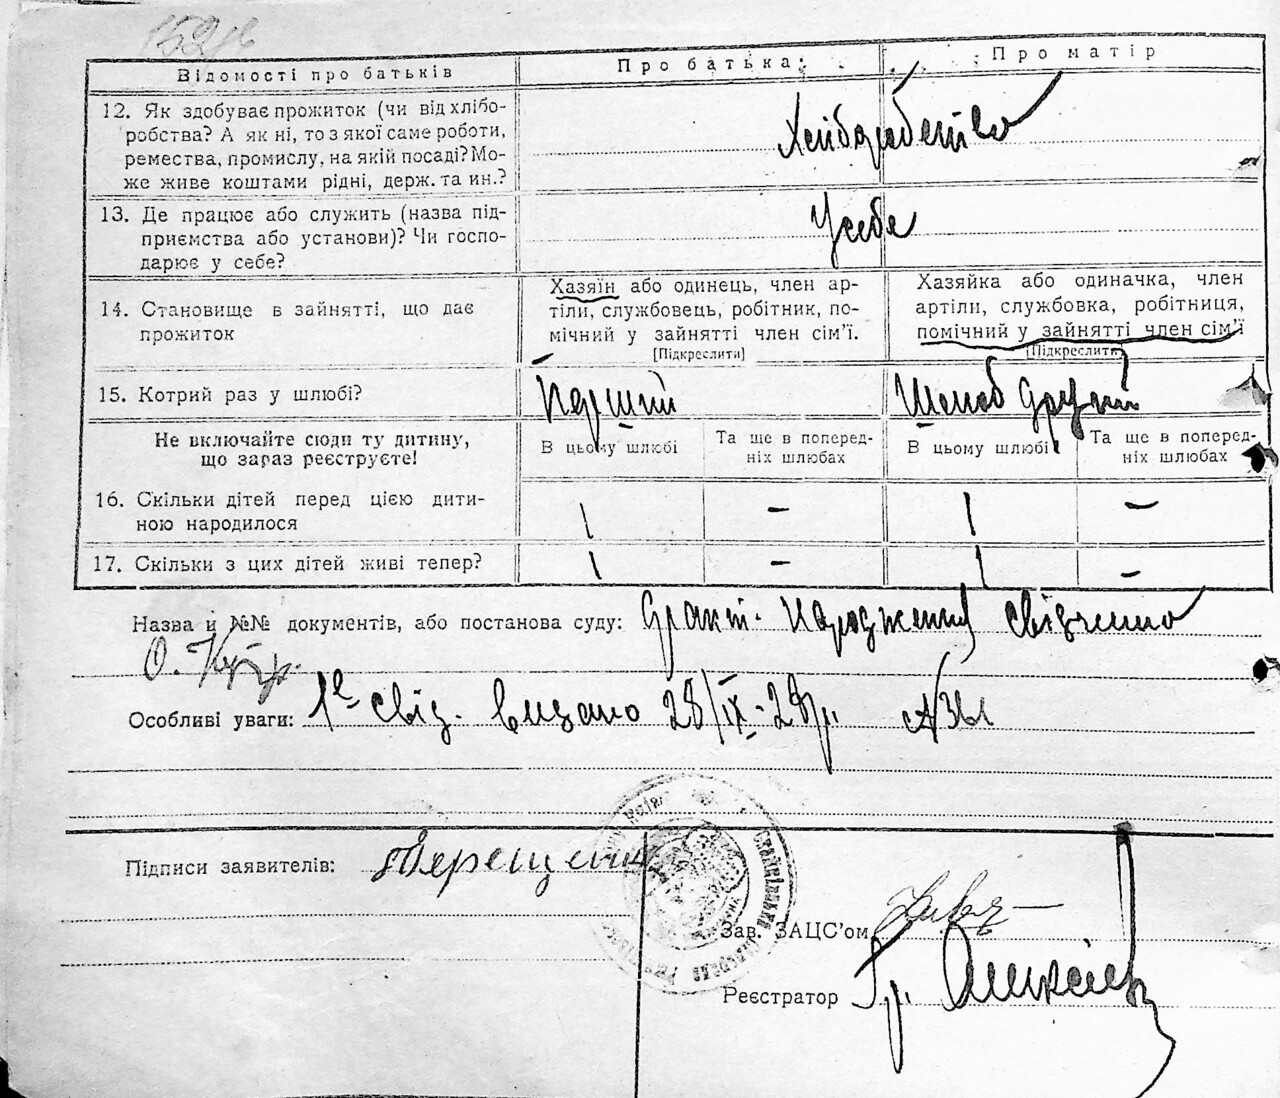 Відомості про батьків
Про батька:
Про матір
12. Як здобуває прожиток (чи від хлібо-
робства? А як ні, то з якої саме роботи,
ремества, промислу, на якій посаді? Мо-
же живе коштами рідні, держ. та ин.?
Хліборобство
13. Де працює або служить (назва під-
приємства або установи)? Чи госпо-
дарює у себе?
У себе
14. Становище в зайнятті, що дає
прожиток
Хазяїн або одинець, член ар-
тіли, службовець, робітник, по-
мічний у зайнятті член сім'ї.
[Підкреслити]
Хазяйка або одиначка, член
артіли, службовка, робітниця,
помічний у зайнятті член сім'ї
[Підкреслити]
15. Котрий раз у шлюбі?
Перший
Шлюб другий
Не включайте сюди ту дитину,
що зараз реєструєте!
В цьому шлюбі
Та ще в поперед-
ніх шлюбах
В цьому шлюбі
Та ще в поперед-
ніх шлюбах
16. Скільки дітей перед цією дити-
ною народилося
1 - 1 -
17. Скільки з цих дітей живі тепер?
1 - 1 -
Назва и №№ документів, або постанова суду: факт народження свідчено
Особливі уваги: 1е свід. видано 28/IX-28р.
Підписи заявителів:
Зав. ЗАЦС'ом
Реєстратор Гр.